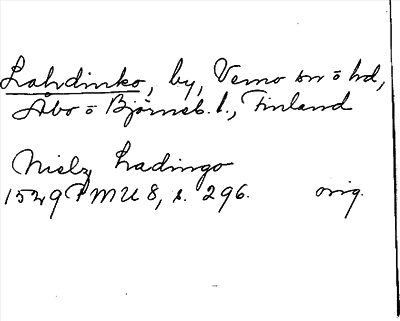 Lahdinko, by, Vemo sn o hd,
Åbo o Björneb. l., Finland
Nielz Ladingo
1549 FMU 8, s. 296. orig.